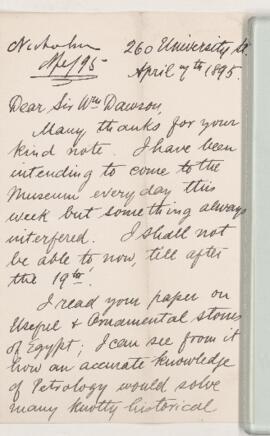 260 University St.
Apl/95
April 7th 1895.
Dear Sir Wm Dawson,
Many thanks for your
kind note. I have been
intending to come to the
Museum every day this
week but something always
interfered. I shall not
be able to now, till after
the 19th.
I read your paper on
Useful & Ornamental stones
of Egypt; I can see from it
how an accurate knowledge
of Petrology would solve
many knotty historical